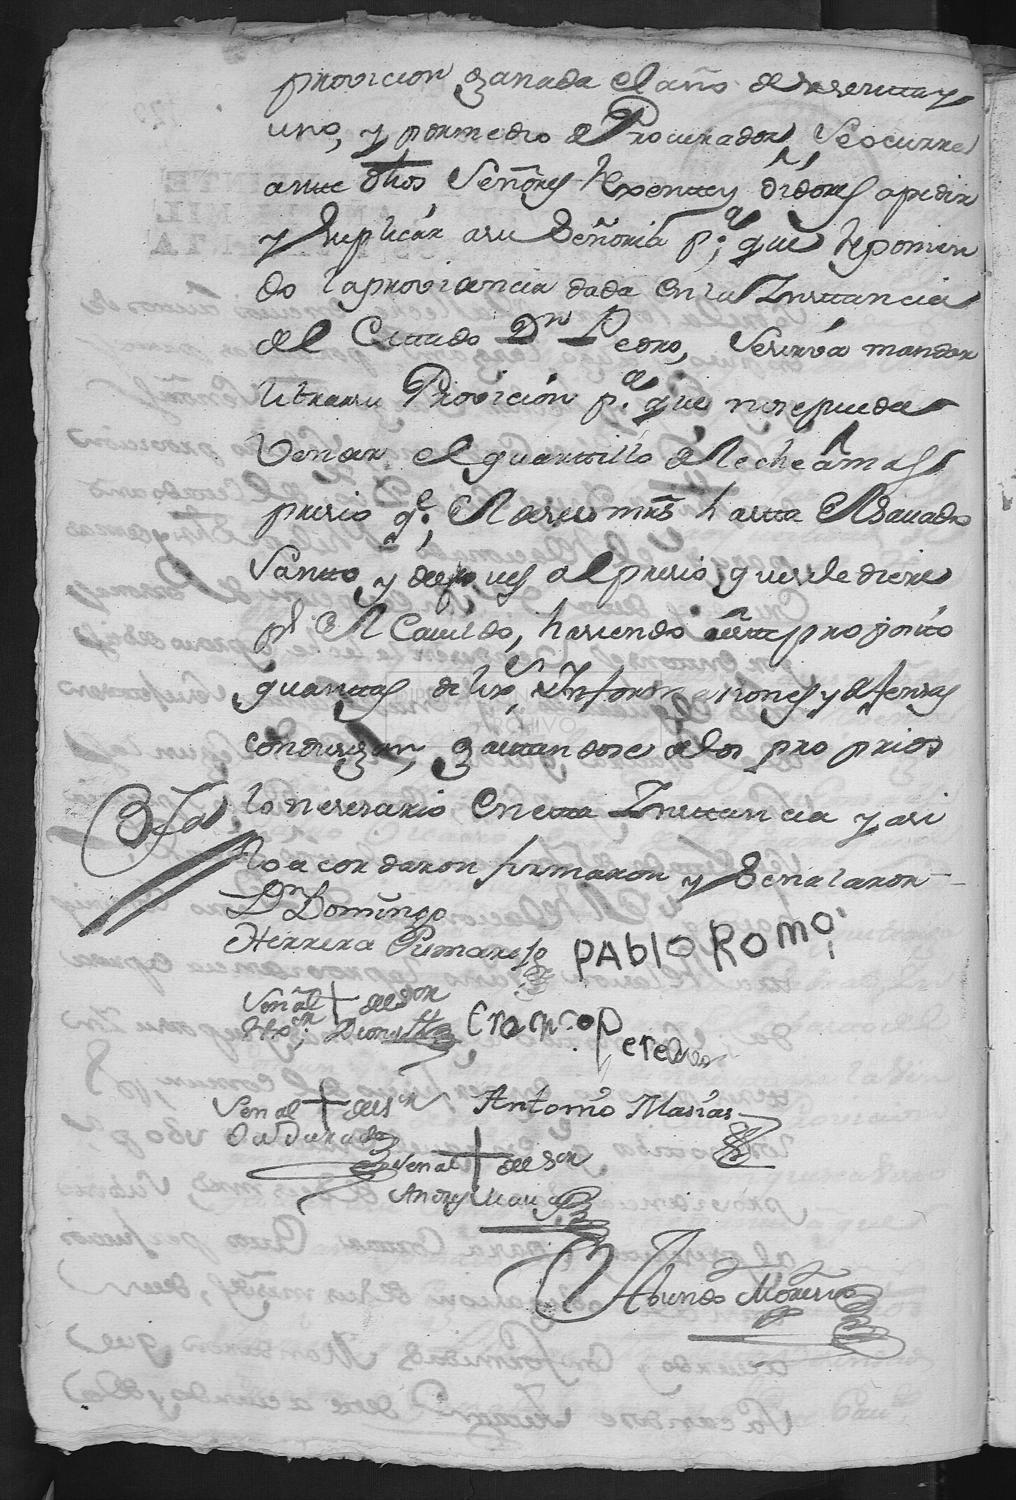 provicion ganada el año de sesentta y
uno, y por medio de Procurador Se ocurra
antte dhos Señores Rexentte y oidores a pedir
y Suplicár a su Señoria pa. que reponien
do la providencia dada en la Insttancia
del Cittado Dn Pedro, Se sirva mandar
librar su Provicion pa. que no se pueda
Vender el quarttillo de leche á mas
presio qe. el de seis mrs hastta el Savado
Santto, y despues al presio, que se le diere
pr el Cavildo, hasiendo a estte proposito
quanttas Informaziones y defensas
condusgan, gasttandose de los proprios
lo nesesario en estta Insttancia y asi
lo acordaron firmaron y Señalaron
Dn Domingo
Herrera Pumarejo PAblo Romo
Señal + del Sor
Rexr. Franco Peredes
Señal + del Sr Antonio Masias
Señal + del Sor
Andres
Abundo Moreno
ARCHIVO